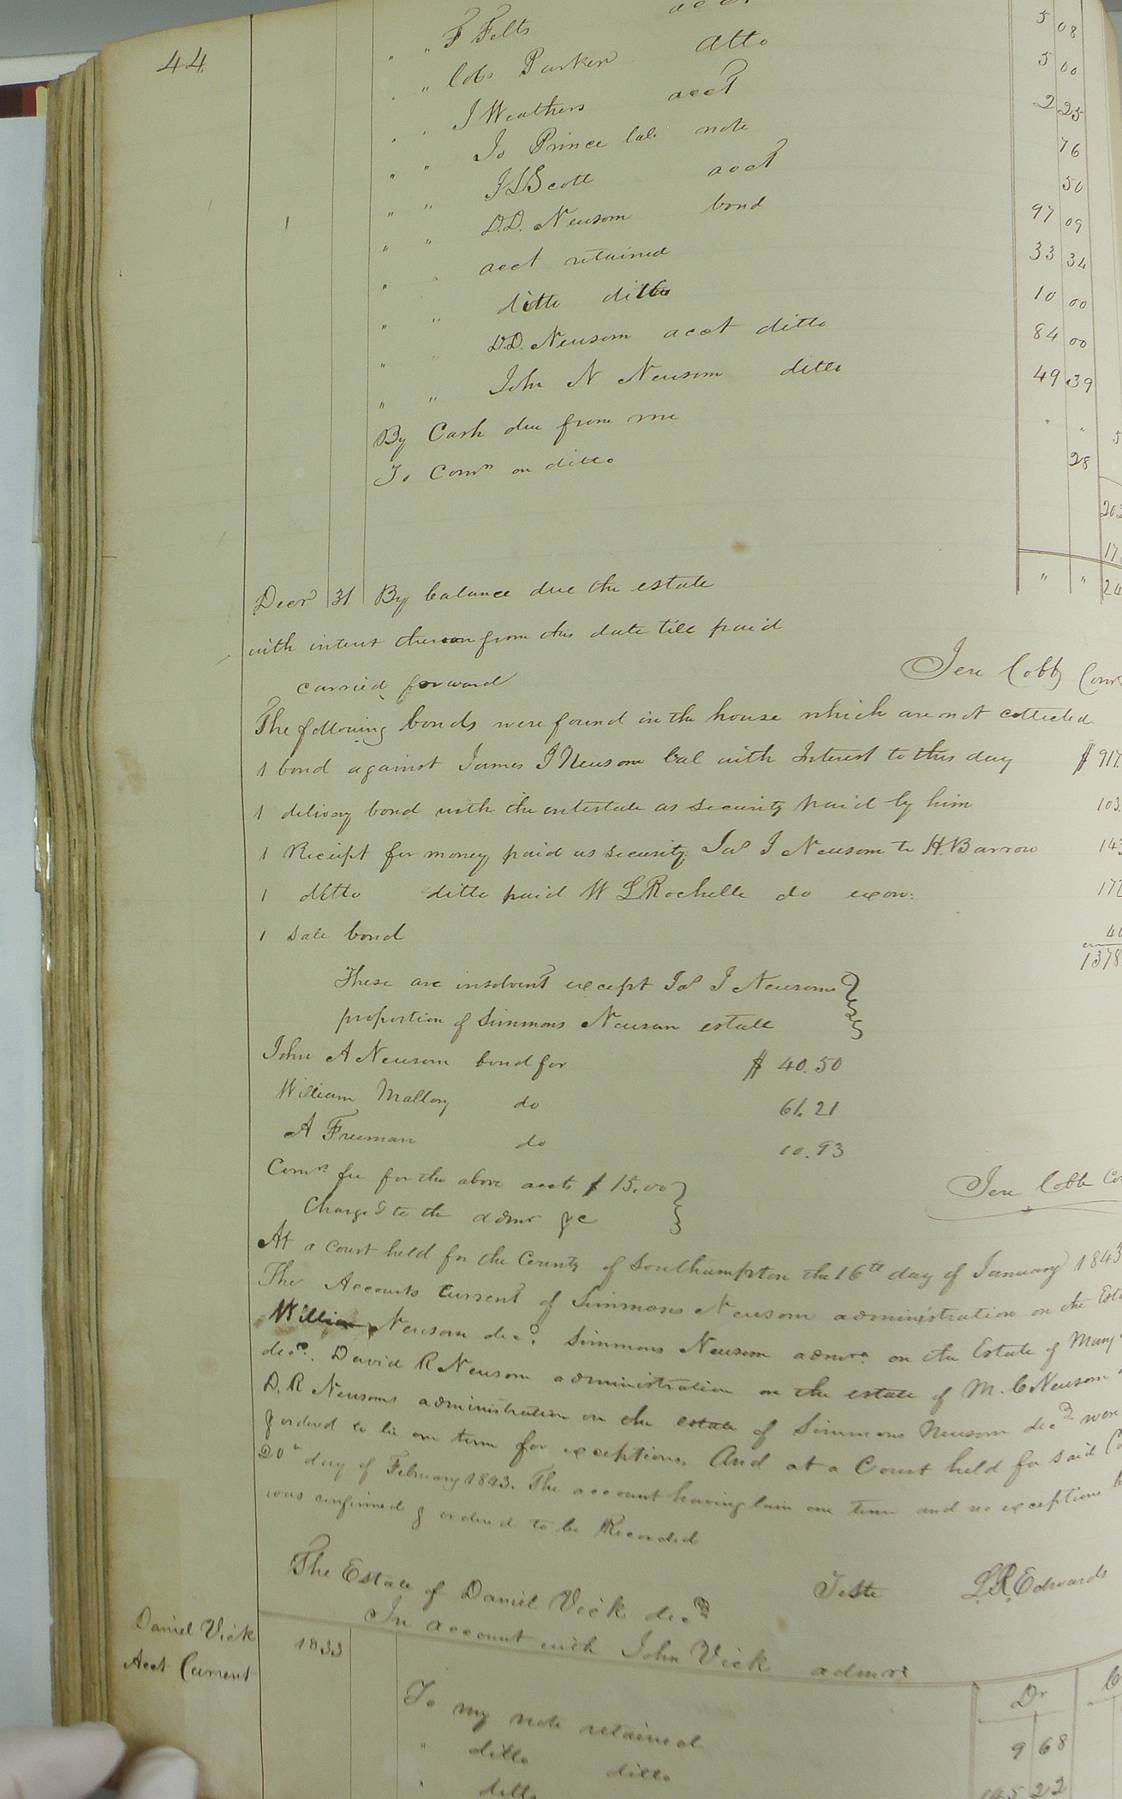 44.
" " F Felts acct 5 08
" " Cobs Parker Atto 5 00
" " J Weathers acct 2 25
" " To Prince bal. note 76
" " J S Scott acct 50
" " D.D. Neusom bond 97 09
" " acct retained 33 34
" " ditto ditto 10 00
" " D.D. Neusom acct ditto 84 00
" " John N Neusom ditto 49 39
By Cash due from me " "
To Comn on ditto 28
Decr 31 By balance due the estate " "
with interest thereon from this date till paid
carried forward Jere Cobb Comr
The following bonds were found in the house which are not collected
1 bond against James J Neusom bal with Interest to this day $ 917
1 delivery bond with the intestate as security paid by him 103
1 Receipt for money paid as security Jas J Neusom to H. Barrow 143
1 ditto ditto paid W L Rochelle do exon:
1 sale bond
1378
These are insolvent except Jas J Neusoms
proportion of Simmons Neusom estate
John A Neusom bond for $ 40.50
William Mallory do 61.21
A Freeman do 10.93
Comrs fee for the above accts $ 15.00
Charged to the admr &c Jere Cobb Co
At a Court held for the County of Southampton the 16th day of January 1843
The Accounts Current of Simmons Neusom administration on the Esta
William Neusom decd. Simmons Neusom admr on the Estate of Mary
decd. David R Neusom administration on the estate of M. C Neusom
D. R Neusoms administration on the estate of Simmons Neusom decd were
& ordered to lie one term for exceptions. And at a Court held for said Co
20th day of February 1843. The account having lain one term and no exceptions
was confirmed & ordered to be Recorded
Teste L R Edwards
The Estate of Daniel Vick decd
In account with John Vick admor
Daniel Vick
Acct Current
1833 Dr
To my note retained 9 68
" ditto ditto 145 22
" ditto